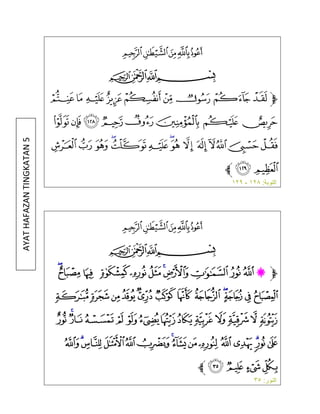 AYAT HAFAZAN TINGKATAN 5
أَعُوذُ بِاللَّهِ مِنَ الشَّيْطَانِ الرَّجِيمِ
بِسْمِ اللَّهِ الرَّحْمَٰنِ الرَّحِيمِ
﴿ لَقَدْ جَآءَكُمْ رَسُولٌ مِّنْ أَنفُسِكُمْ عَزِيزٌ عَلَيْهِ مَا عَنِتُّمْ
حَرِيصٌ عَلَيْكُم بِالْمُؤْمِنِينَ رَءُوفٌ رَّحِيمٌ ١٢٨ فَإِن تَوَلَّوْا۟
فَقُلْ حَسْبِيَ اللَّهُ لَآ إِلَٰهَ إِلَّا هُوَ ۖ عَلَيْهِ تَوَكَّلْتُ ۖ وَهُوَ رَبُّ الْعَرْشِ
الْعَظِيمِ ١٢٩ ﴾
التوبة: ١٢٨ - ١٢٩
أَعُوذُ بِاللَّهِ مِنَ الشَّيْطَانِ الرَّجِيمِ
بِسْمِ اللَّهِ الرَّحْمَٰنِ الرَّحِيمِ
﴿ ۞ اللَّهُ نُورُ السَّمَٰوَٰتِ وَالْأَرْضِ ۚ مَثَلُ نُورِهِۦ كَمِشْكَوٰةٍ فِيهَا مِصْبَاحٌ ۖ
الْمِصْبَاحُ فِى زُجَاجَةٍ ۖ الزُّجَاجَةُ كَأَنَّهَا كَوْكَبٌ دُرِّىٌّ يُوقَدُ مِن شَجَرَةٍ مُّبَٰرَكَةٍ
زَيْتُونَةٍ لَّا شَرْقِيَّةٍ وَلَا غَرْبِيَّةٍ يَكَادُ زَيْتُهَا يُضِىٓءُ وَلَوْ لَمْ تَمْسَسْهُ نَارٌ ۚ نُّورٌ
عَلَىٰ نُورٍ ۗ يَهْدِى اللَّهُ لِنُورِهِۦ مَن يَشَآءُ ۚ وَيَضْرِبُ اللَّهُ الْأَمْثَٰلَ لِلنَّاسِ ۗ وَاللَّهُ
بِكُلِّ شَىْءٍ عَلِيمٌ ٣٥ ﴾
النور: ٣٥